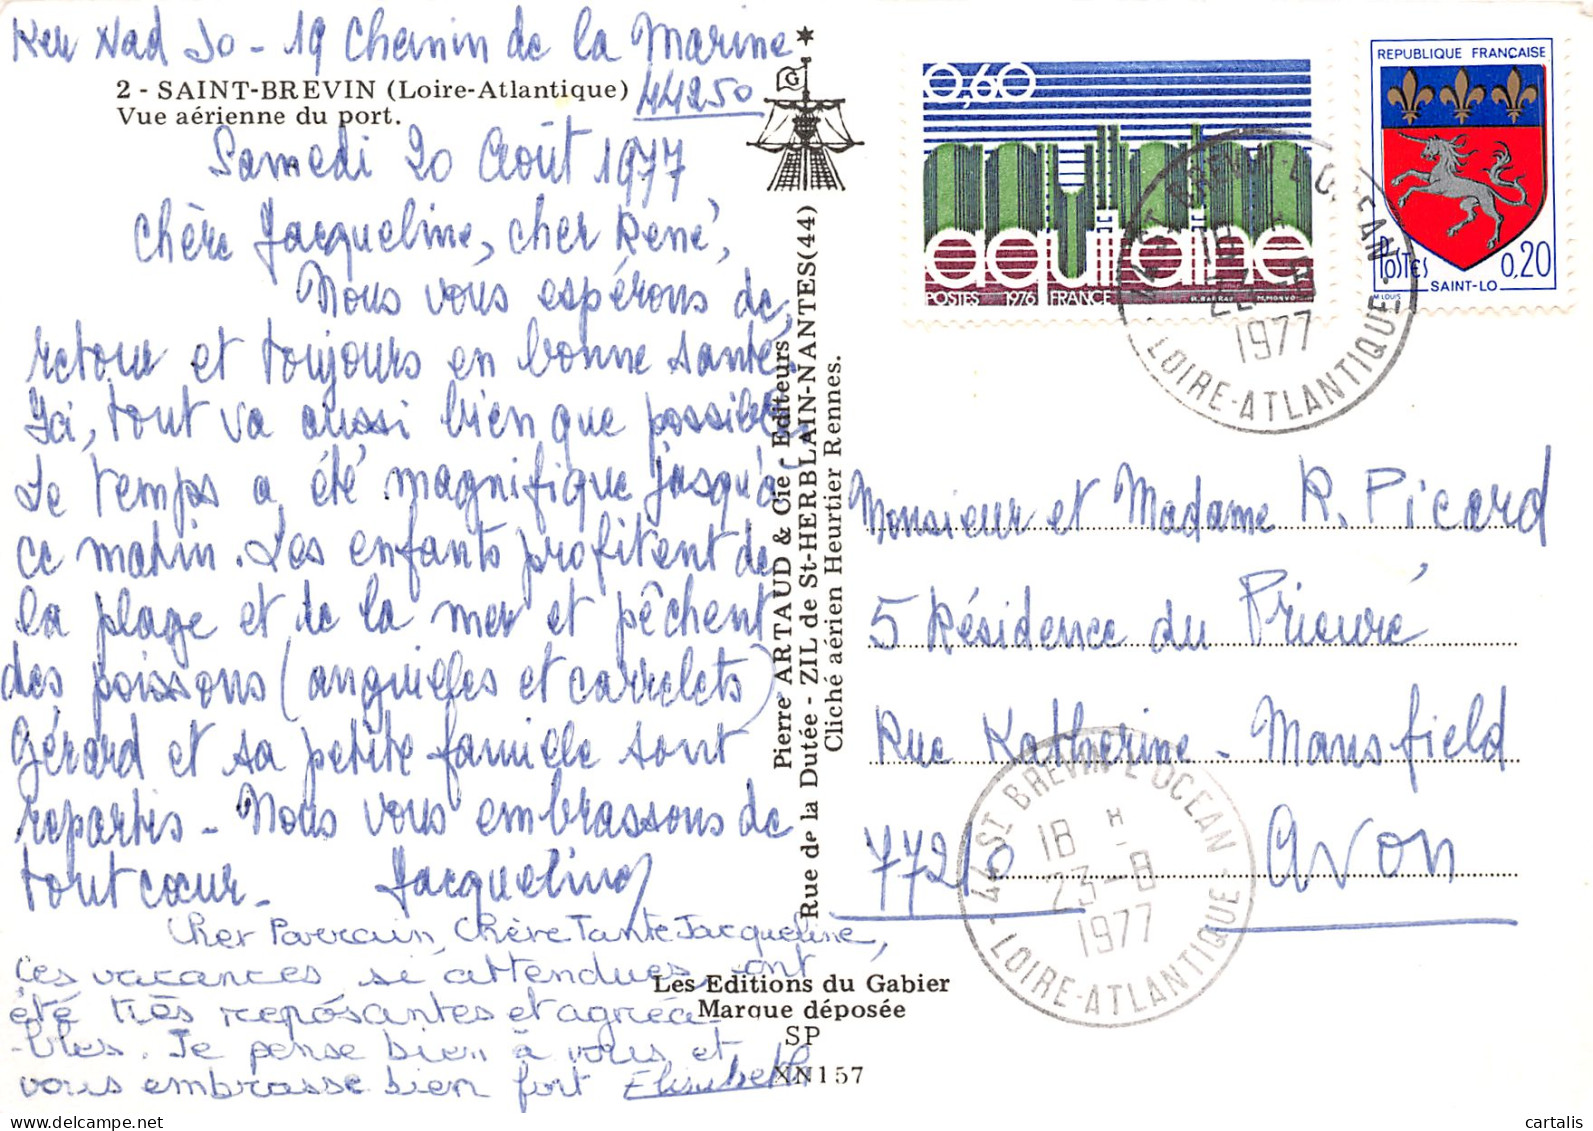 Ker Nad Jo - 19 Chemin de la Marine
44250
2 - SAINT-BREVIN (Loire-Atlantique)
Vue aérienne du port.
Samedi 20 Août 1977
Chère Jacqueline, cher René,
Nous vous espérons de
retour et toujours en bonne santé.
Ici, tout va aussi bien que possible.
Le temps a été magnifique jusqu'à
ce matin. Les enfants profitent de
la plage et de la mer et pêchent
des poissons (anguilles et carrelets)
Gérard et sa petite famille sont
repartis - Nous vous embrassons de
tout cœur. Jacqueline
Cher Parrain, Chère Tante Jacqueline,
Ces vacances si attendues, ont
été très reposantes et agréa-
-bles. Je pense bien à vous et
vous embrasse bien fort Elisabeth
Pierre ARTAUD & Cie - Editeurs
Rue de la Dutée - ZIL de St-HERBLAIN-NANTES (44)
Cliché aérien Heurtier Rennes.
Les Editions du Gabier
Marque déposée
SP
XN157
G
0,60
aquitaine
POSTES 1976 FRANCE
REPUBLIQUE FRANÇAISE
POSTES 0,20
SAINT-LO
M. LOUIS
44 ST BREVIN-L'OCEAN
1977
LOIRE-ATLANTIQUE
Monsieur et Madame R. Picard
5 Résidence du Prieuré
Rue Katherine - Mansfield
77210 Avon
44 ST BREVIN-L'OCEAN
18 H
23-8
1977
LOIRE-ATLANTIQUE
cartalis
delcampe.net